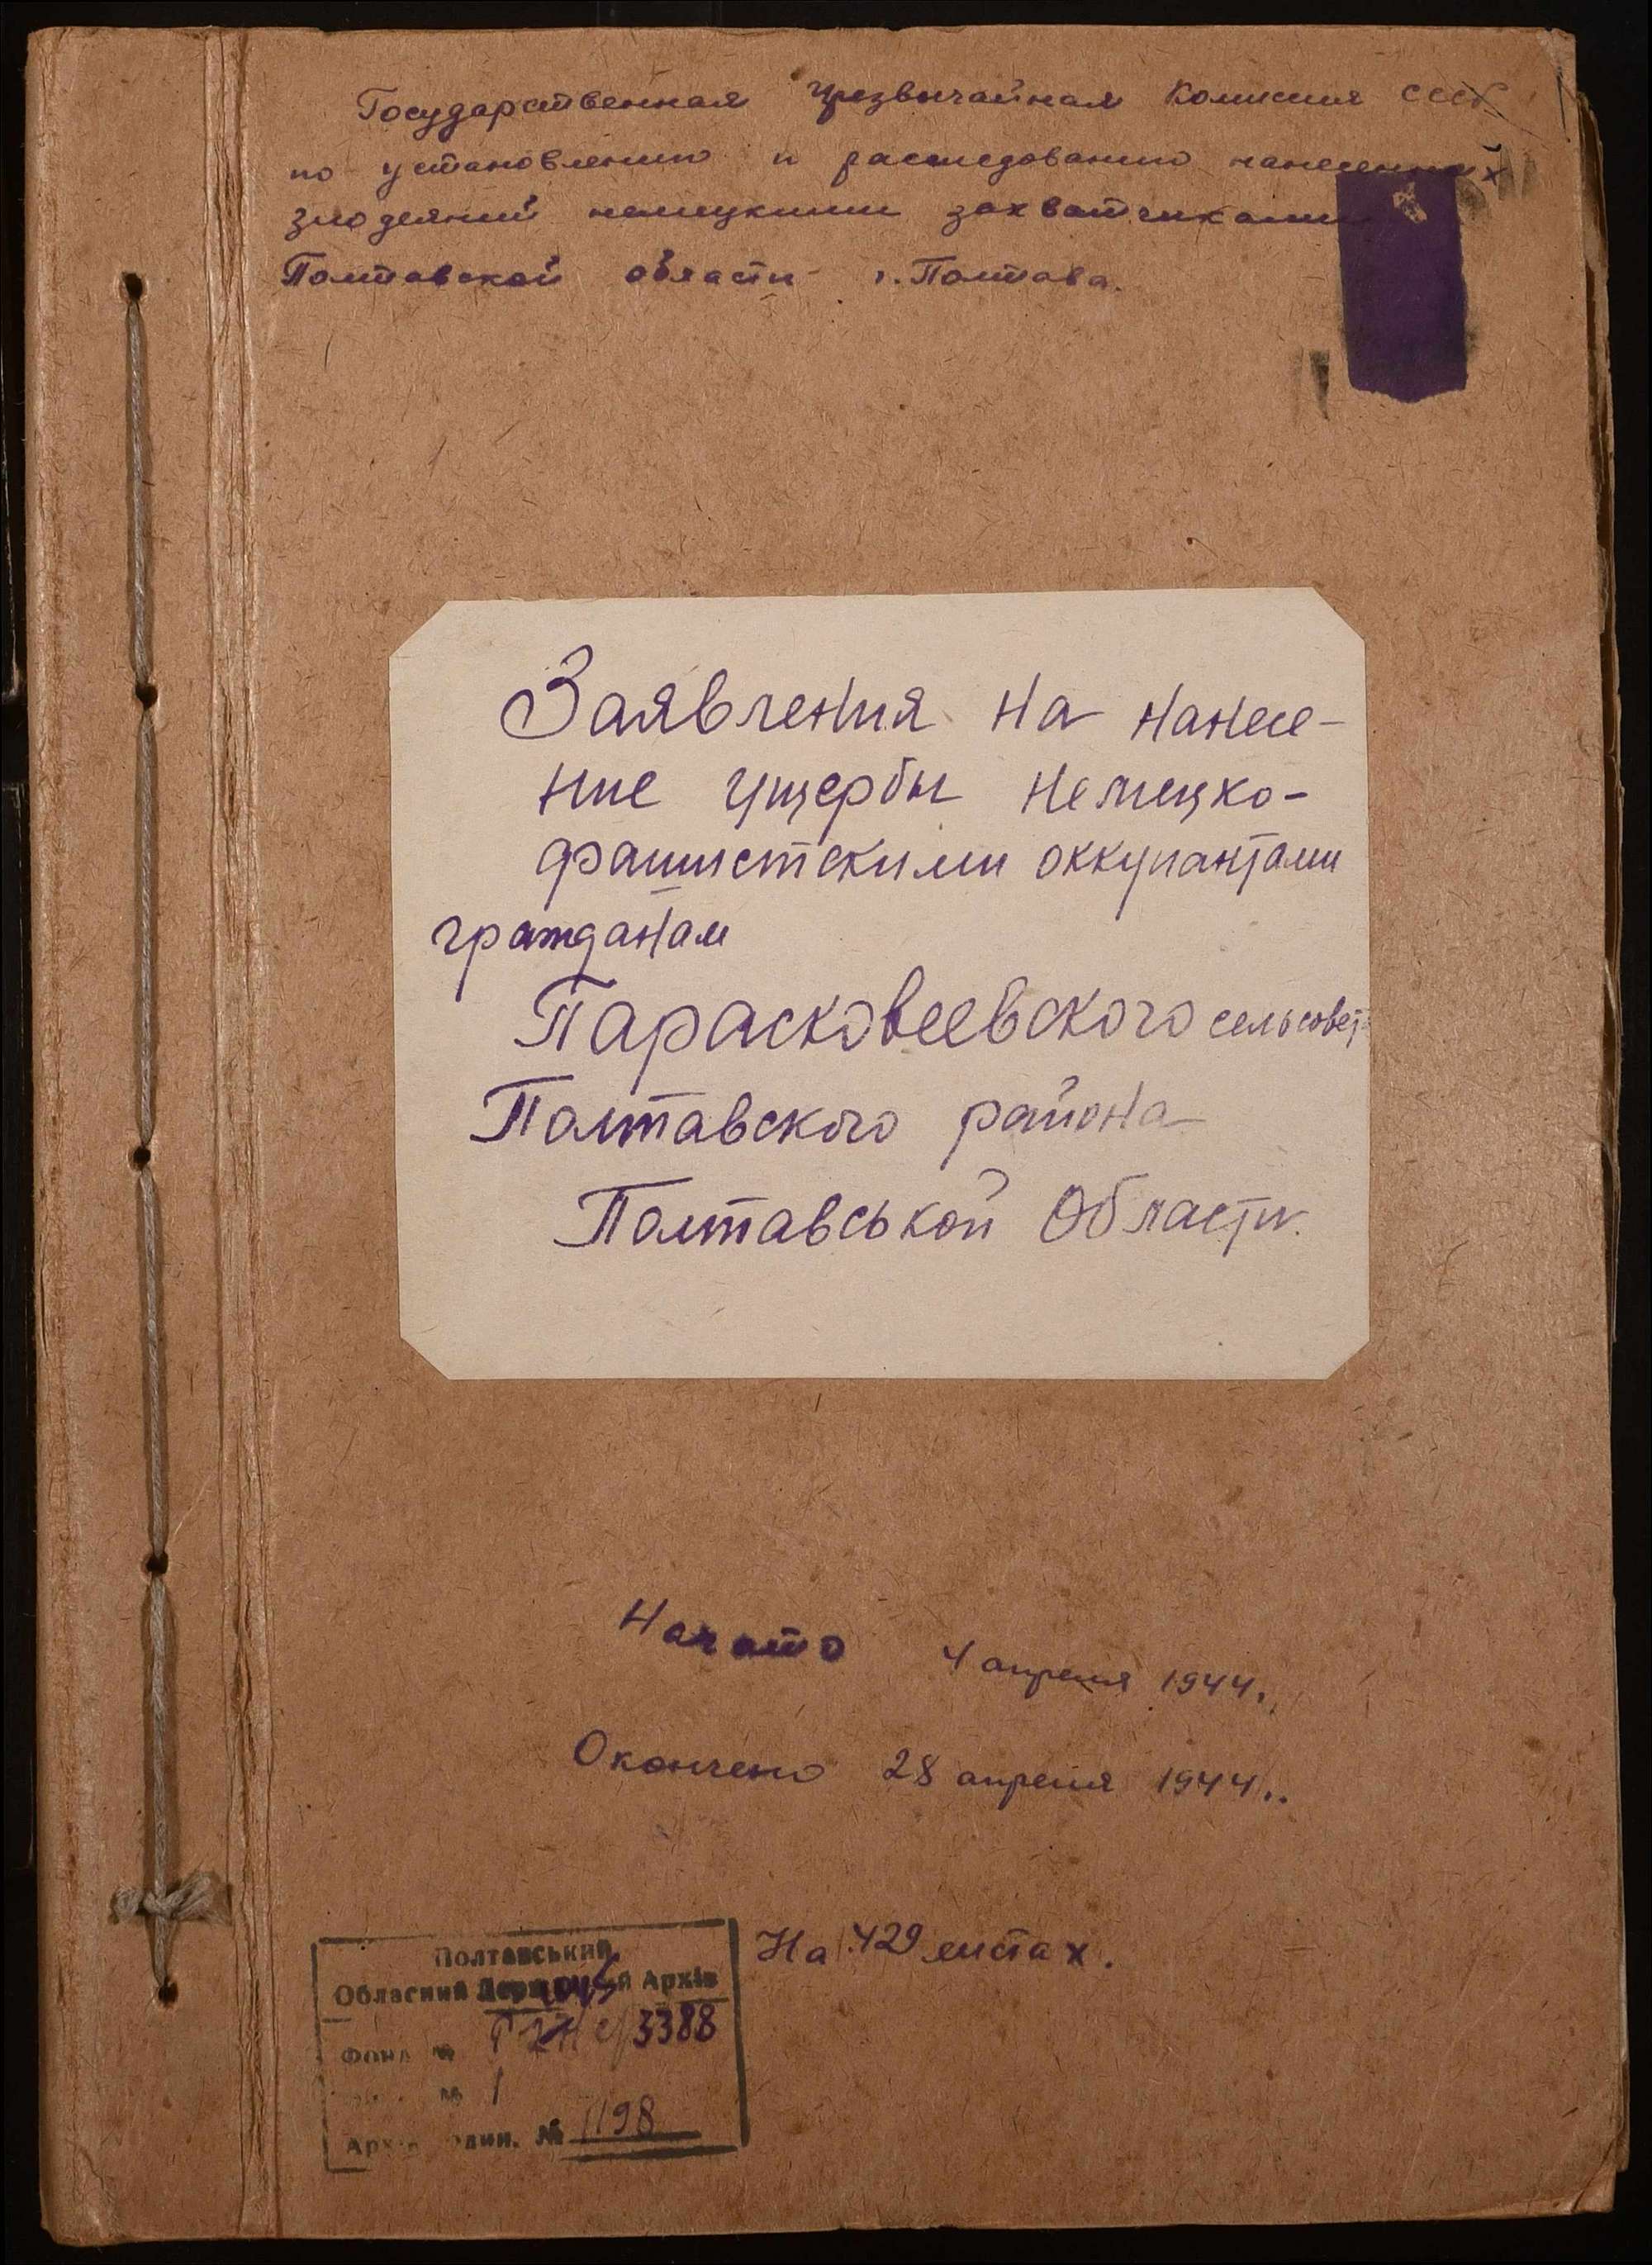 Государственная Чрезвычайная Комиссия СССР
по установлению и расследованию нанесенных
злодеяний немецкими захватчиками
Полтавской области г. Полтава.
Заявления на нанесе-
ние ущербы немецко-
фашистскими оккупантами
гражданам
Парасковеевского сельсовет
Полтавского района
Полтавськой Области.
Начато 4 апреля 1944.
Окончено 28 апреля 1944..
На 429 листах.
Полтавський
Обласний Державний Архів
Фонд № 3388
№ 1
один. № 1198